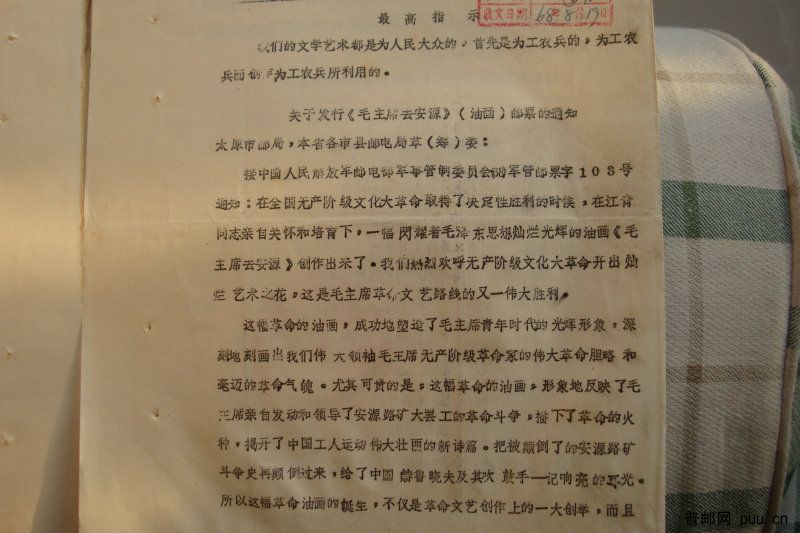 最高指示
收文日期 68年8月19日
我们的文学艺术都是为人民大众的，首先是为工农兵的，为工农
兵而创作为工农兵所利用的。
关于发行《毛主席去安源》（油画）邮票的通知
太原市邮局，本省各市县邮电局革（筹）委：
接中国人民解放军邮电部军事管制委员会68军管邮票字103号
通知：在全国无产阶级文化大革命取得了决定性胜利的时候，在江青
同志亲自关怀和培育下，一幅闪耀着毛泽东思想灿烂光辉的油画《毛
主席去安源》创作出来了。我们热烈欢呼无产阶级文化大革命开出灿
烂艺术之花，这是毛主席革命文艺路线的又一伟大胜利。
这幅革命的油画，成功地塑造了毛主席青年时代的光辉形象，深
刻地刻画出我们伟大领袖毛主席无产阶级革命家的伟大革命胆略和
毫迈的革命气魄。尤其可贵的是，这幅革命的油画，形象地反映了毛
主席亲自发动和领导了安源路矿大罢工的革命斗争，播下了革命的火
种，揭开了中国工人运动伟大壮丽的新诗篇。把被颠倒了的安源路矿
斗争史再颠倒过来，给了中国赫鲁晓夫及其吹鼓手一记响亮的耳光。
所以这幅革命油画的诞生，不仅是革命文艺创作上的一大创举，而且
普邮网 puu.cn